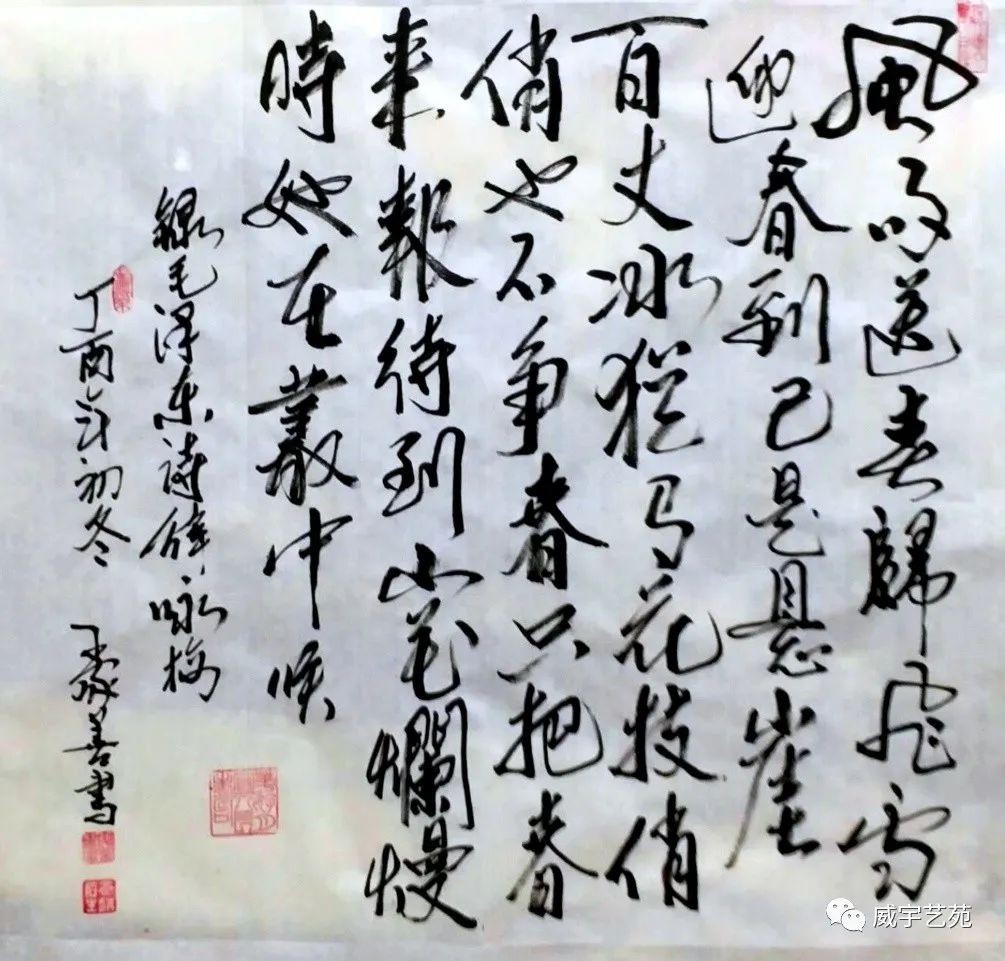 風雨送春歸飛雪
迎春到已是懸崖
百丈冰猶有花枝俏
俏也不争春只把春
来報待到山花爛熳
時她在叢中笑
錄毛泽东詩詞咏梅
丁酉年初冬 善書
威宇艺苑